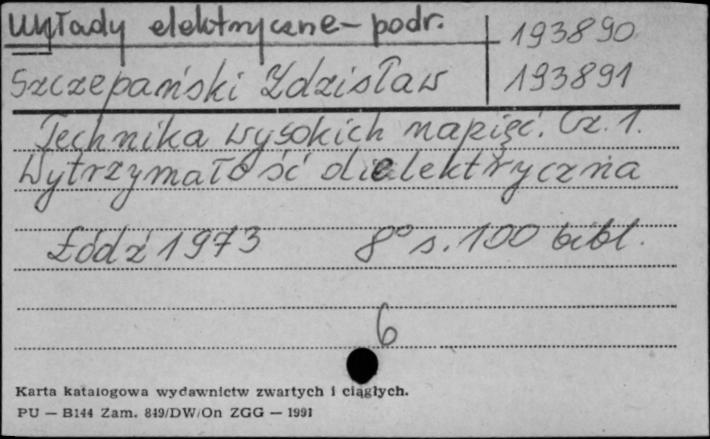 Układy elektryczne - podr.
193890
Szczepański Zdzisław
193891
Technika wysokich napięć. Cz. 1.
Wytrzymałość dielektryczna
Łódź 1973 8° s. 100 bibl.
6
Karta katalogowa wydawnictw zwartych i ciągłych.
PU — B144 Zam. 849/DW/On ZGG — 1991